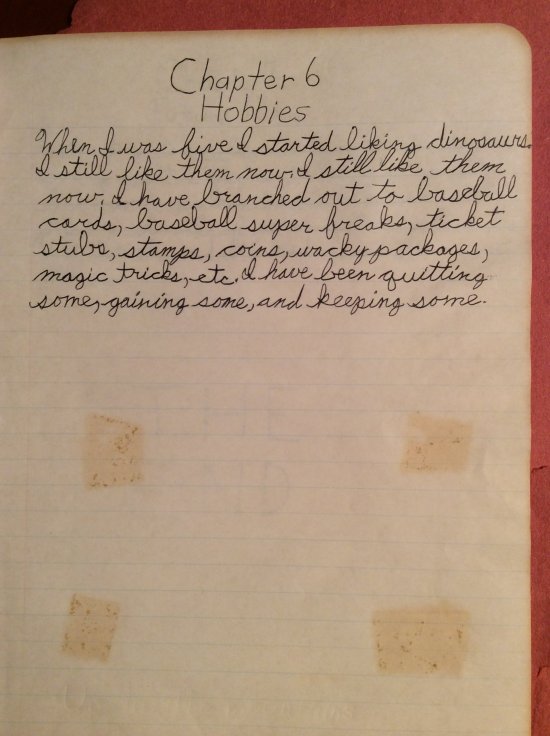 Chapter 6
Hobbies
When I was five I started liking dinosaurs.
I still like them now. I still like them
now. I have branched out to baseball
cards, baseball super freaks, ticket
stubs, stamps, coins, wacky packages,
magic tricks, etc. I have been quitting
some, gaining some, and keeping some.